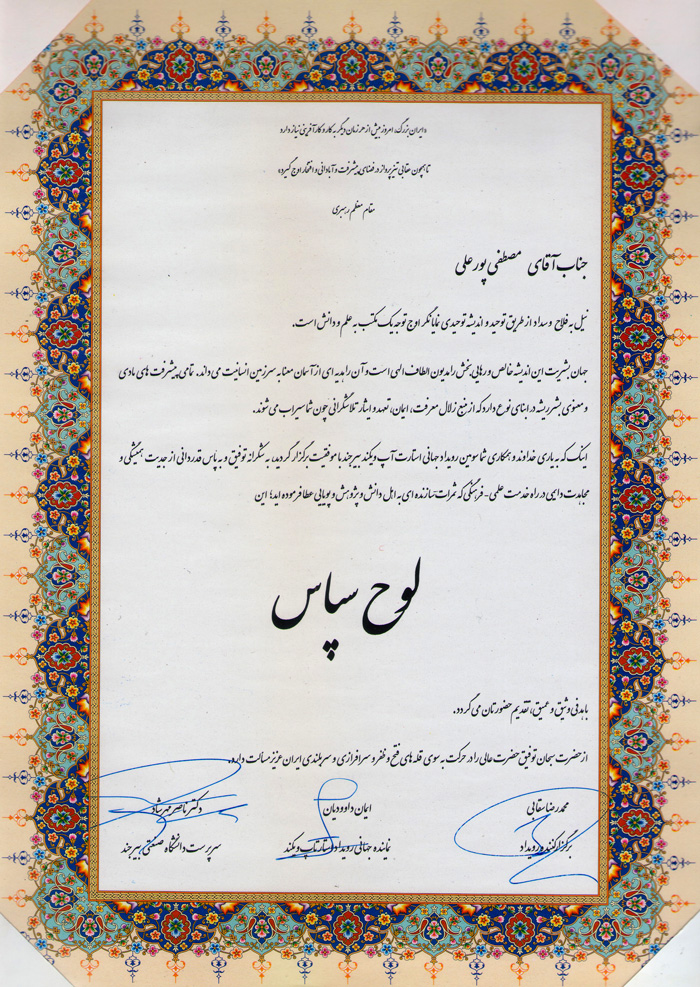 «ایران بزرگ، امروز بیش از هر زمان دیگر به کار و کارآفرینی نیاز دارد
تا همچون عقابی تیزپرواز در فضای پیشرفت و آبادانی و افتخار اوج گیرد»
مقام معظم رهبری
جناب آقای مصطفی پورعلی
نیل به فلاح و سداد از طریق توحید و اندیشه توحیدی نمایانگر اوج توجه یک مکتب به علم و دانش است.
جهان بشریت این اندیشه خالص و رهایی بخش را مدیون الطاف الهی است و آن را هدیه ای از آسمان معنا به سرزمین انسانیت می داند. تمامی پیشرفت های مادی
و معنوی بشر ریشه در ابنای نوع دارد که از منبع زلال معرفت، ایمان، تعهد و ایثار تلاشگرانی چون شما سیراب می شوند.
اینک که به یاری خداوند و همکاری شما سومین رویداد جهانی استارت آپ ویکند بیرجند با موفقیت برگزار گردید، به شکرانه توفیق و به پاس قدردانی از جدیت همیشگی و
مجاهدت دایمی در راه خدمت علمی - فرهنگی که ثمرات سازنده ای به اهل دانش و پژوهش و پویایی عطا فرموده اید؛ این
لوح سپاس
با بدنی وثیق و عمیق، تقدیم حضورتان می گردد.
از حضرت سبحان توفیق حضرت عالی را در حرکت به سوی قله های فتح و ظفر و سرافرازی و سربلندی ایران عزیز مسألت دارد.
محمدرضا سقایی ایمان داوودیان دکتر ناصر مهرشاد
برگزارکننده رویداد نماینده جهانی رویداد استارتاپ ویکند سرپرست دانشگاه صنعتی بیرجند